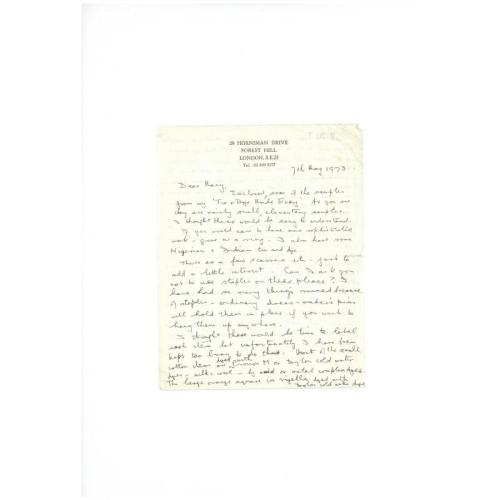 29 HORNIMAN DRIVE
FOREST HILL
LONDON, S.E.23
7th May 1973
Dear Mary,
Enclosed, some of the samples
from my 'Tie & Dye Made Easy'. As you see
they are mainly small, elementary samples.
I thought these would be easy to understand.
If you would care to have more sophisticated
work - give me a ring. I also have some
Nigerian & Indian tie and dye.
There are a few scarves etc - just to
add a little interest. Can I ask you
not to use staples on these please? I
have had so many things ruined because
of staples - ordinary dressmakers pins
will hold them in place if you wish to
hang them up anywhere.
I thought there would be time to label
each item but unfortunately I have been
kept too busy to do that. Most of the small
cotton items are dyed with Procion M or Dylon cold water
dyes - silk, wool - by acid or metal complex dyes.
The large orange square is dyed with
Dylon cold water dye